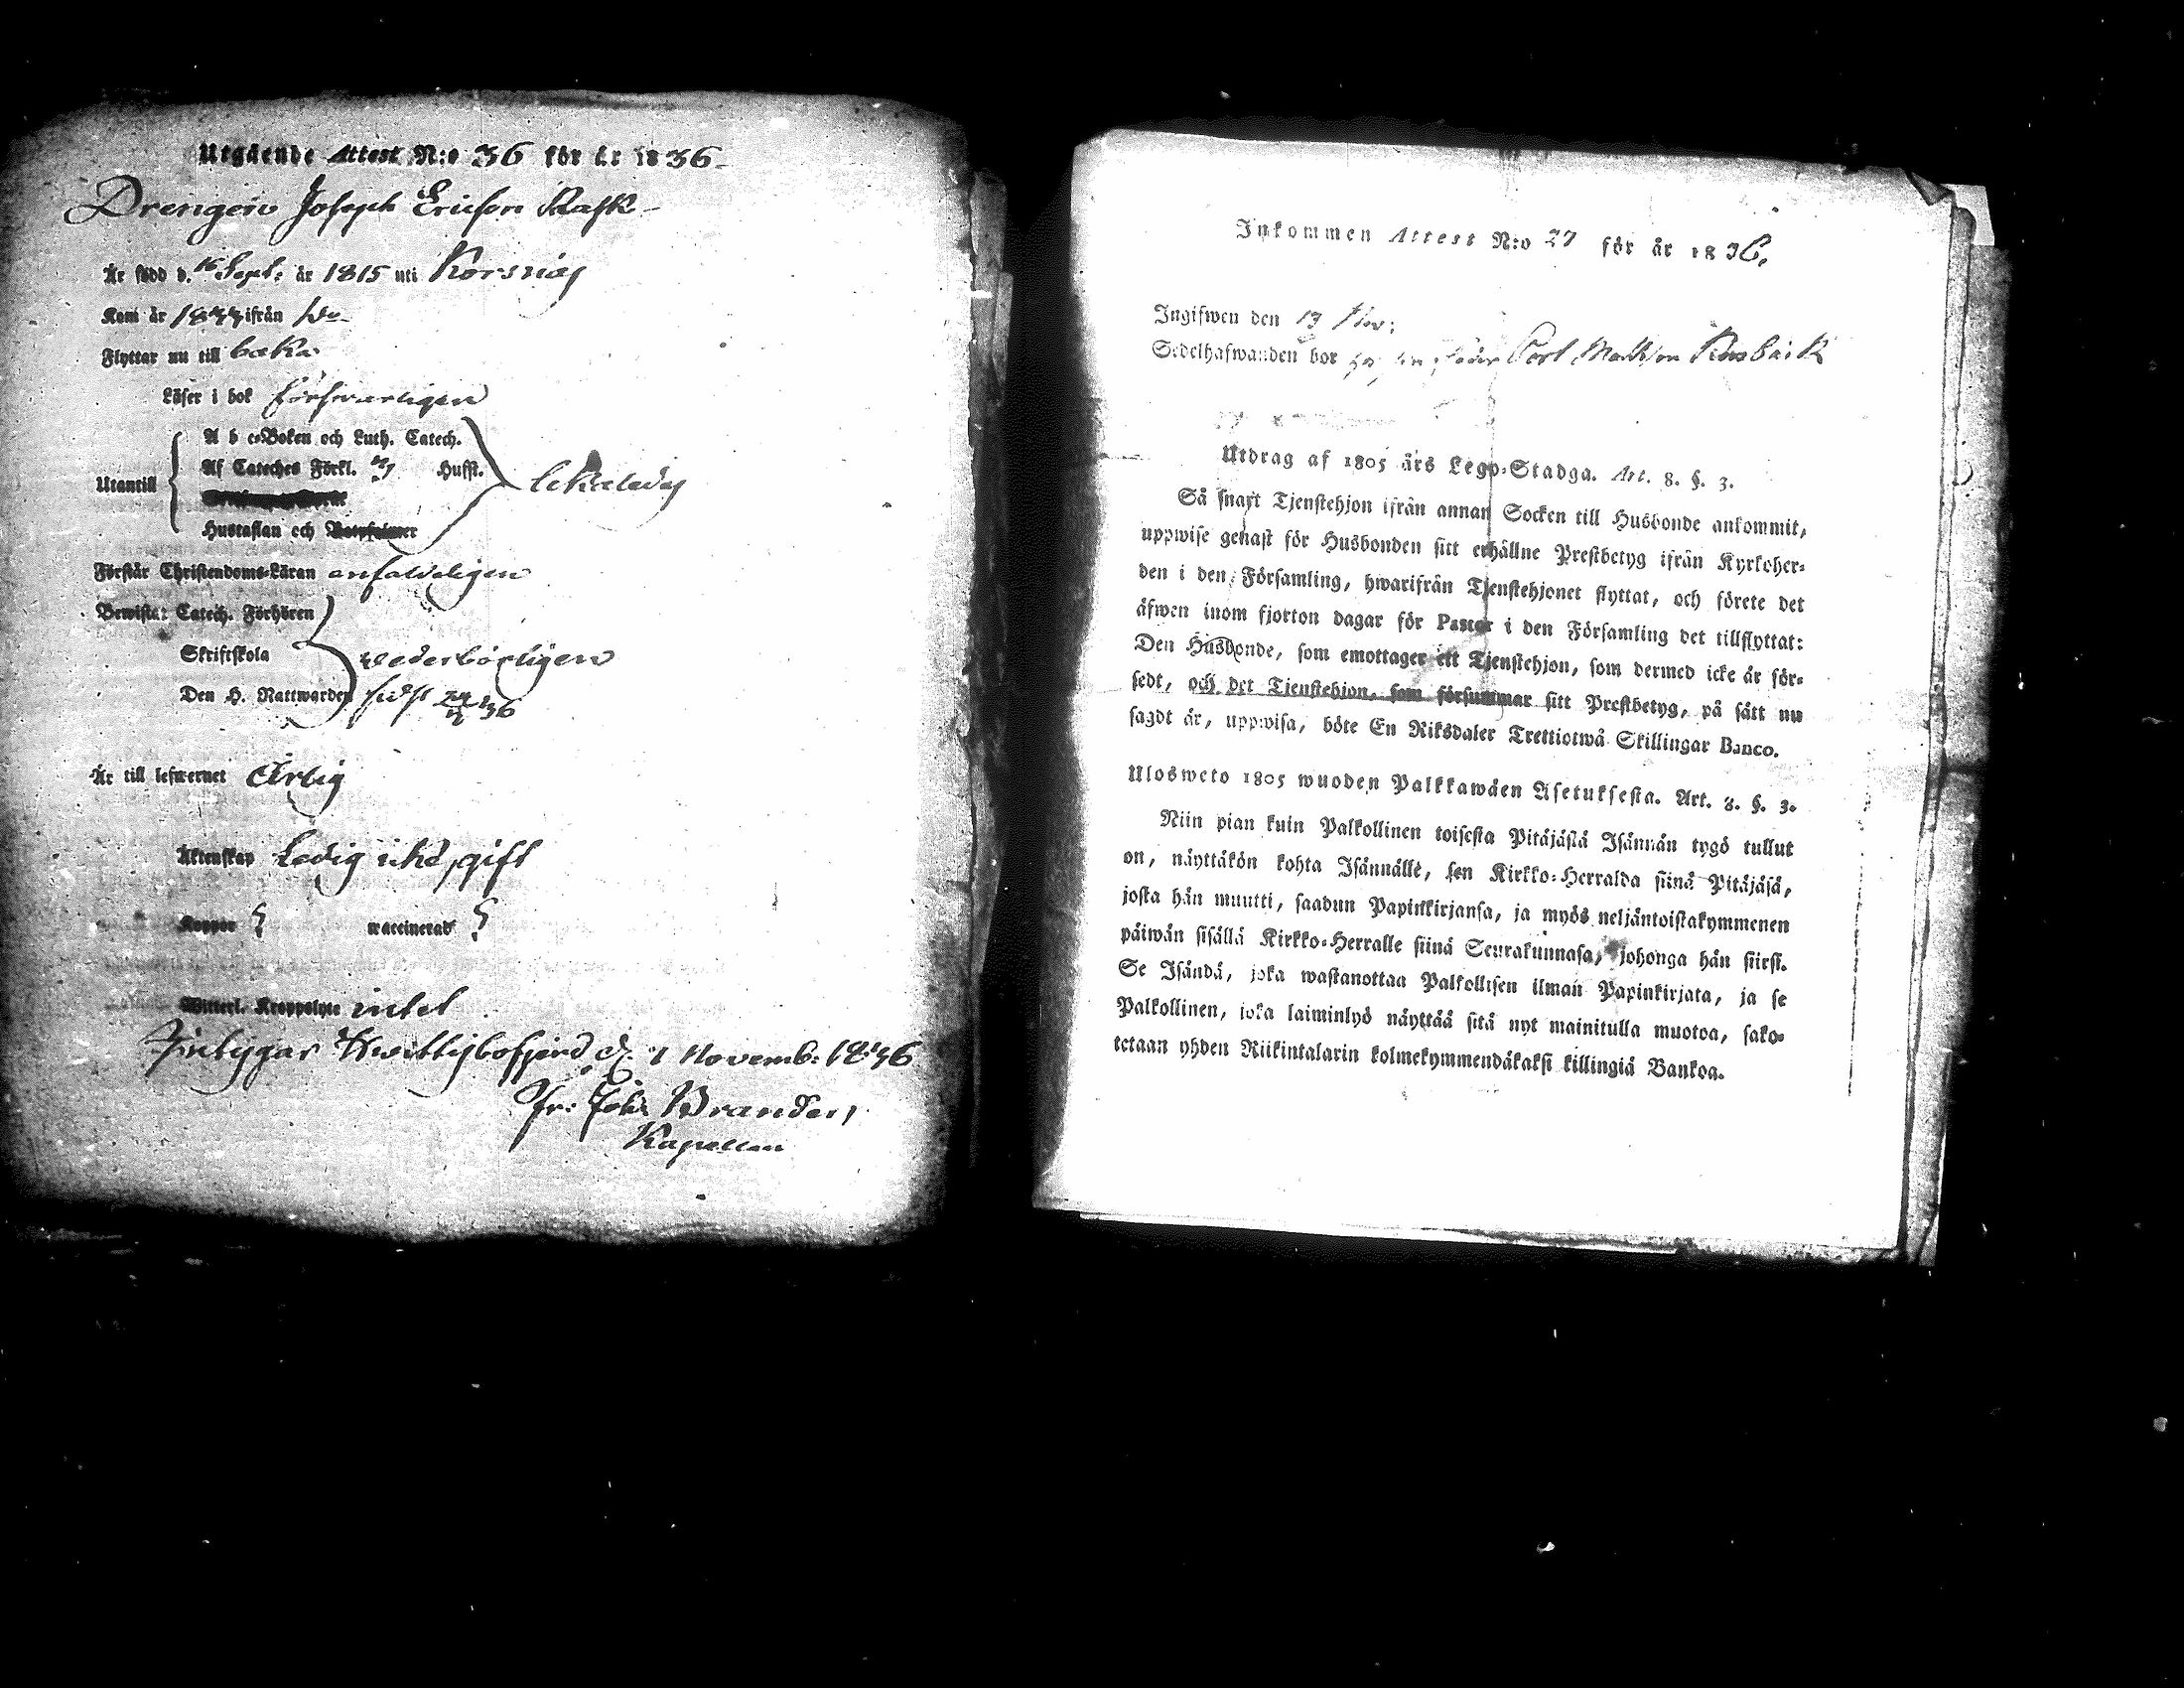 Utgående Attest N:o 36 för år 1836.
Drengen Joseph Ericson Rask
Är född d. 16 Sept: år 1815 uti Korsnäs
Kom år 1833 ifrån Do
Flyttar nu till baka
Läser i bok försvarligen
A b c-Boken och Luth. Catech.
Af Cateches Förkl. Husst.
Utantill
likaledes
Hustaflan och
Förstår Christendoms-Läran enfaldeligen
Bewistat Catech. Förhören
Skriftskola wederbörligen
Den H. Nattwarden sidst 36
Är till lefwernet Ärlig
Äktenskap Ledig icke gift
Koppor waccinerad
Witterl. Kroppslyte intet
d. 1 Novemb: 1836
Joh. Brander,
Kapellan
Inkommen Attest N:o 27 för år 1836.
Ingifwen den 13 Nov:
Sedelhafwanden bor
Utdrag af 1805 års Lego-Stadga. Art. 8. §. 3.
Så snart Tjenstehjon ifrån annan Socken till Husbonde ankommit,
uppwise genast för Husbonden sitt erhållne Prestbetyg ifrån Kyrkoher-
den i den Församling, hwarifrån Tjenstehjonet flyttat, och förete det
äfwen inom fjorton dagar för Pastor i den Församling det tillflyttat:
Den Husbonde, som emottager ett Tjenstehjon, som dermed icke är för-
sedt, och det Tjenstehjon, som försummar sitt Prestbetyg, på sätt nu
sagdt är, uppwisa, böte En Riksdaler Trettiotwå Skillingar Banco.
Ulosweto 1805 wuoden Palkkawäen Asetuksesta. Art. 8. §. 3.
Niin pian kuin Palkollinen toisesta Pitäjästä Isännän tygö tullut
on, näyttäkön kohta Isännälle, sen Kirkko-Herralda siinä Pitäjäsä,
josta hän muutti, saadun Papinkirjansa, ja myös neljäntoistakymmenen
päiwän sisällä Kirkko-Herralle siinä Seurakunnasa, johonga hän siirsi.
Se Isändä, joka wastanottaa Palkollisen ilman Papinkirjata, ja se
Palkollinen, joka laiminlyö näyttää sitä nyt mainitulla muotoa, sako-
tetaan yhden Riikintalarin kolmekymmendäkaksi killingiä Bankoa.